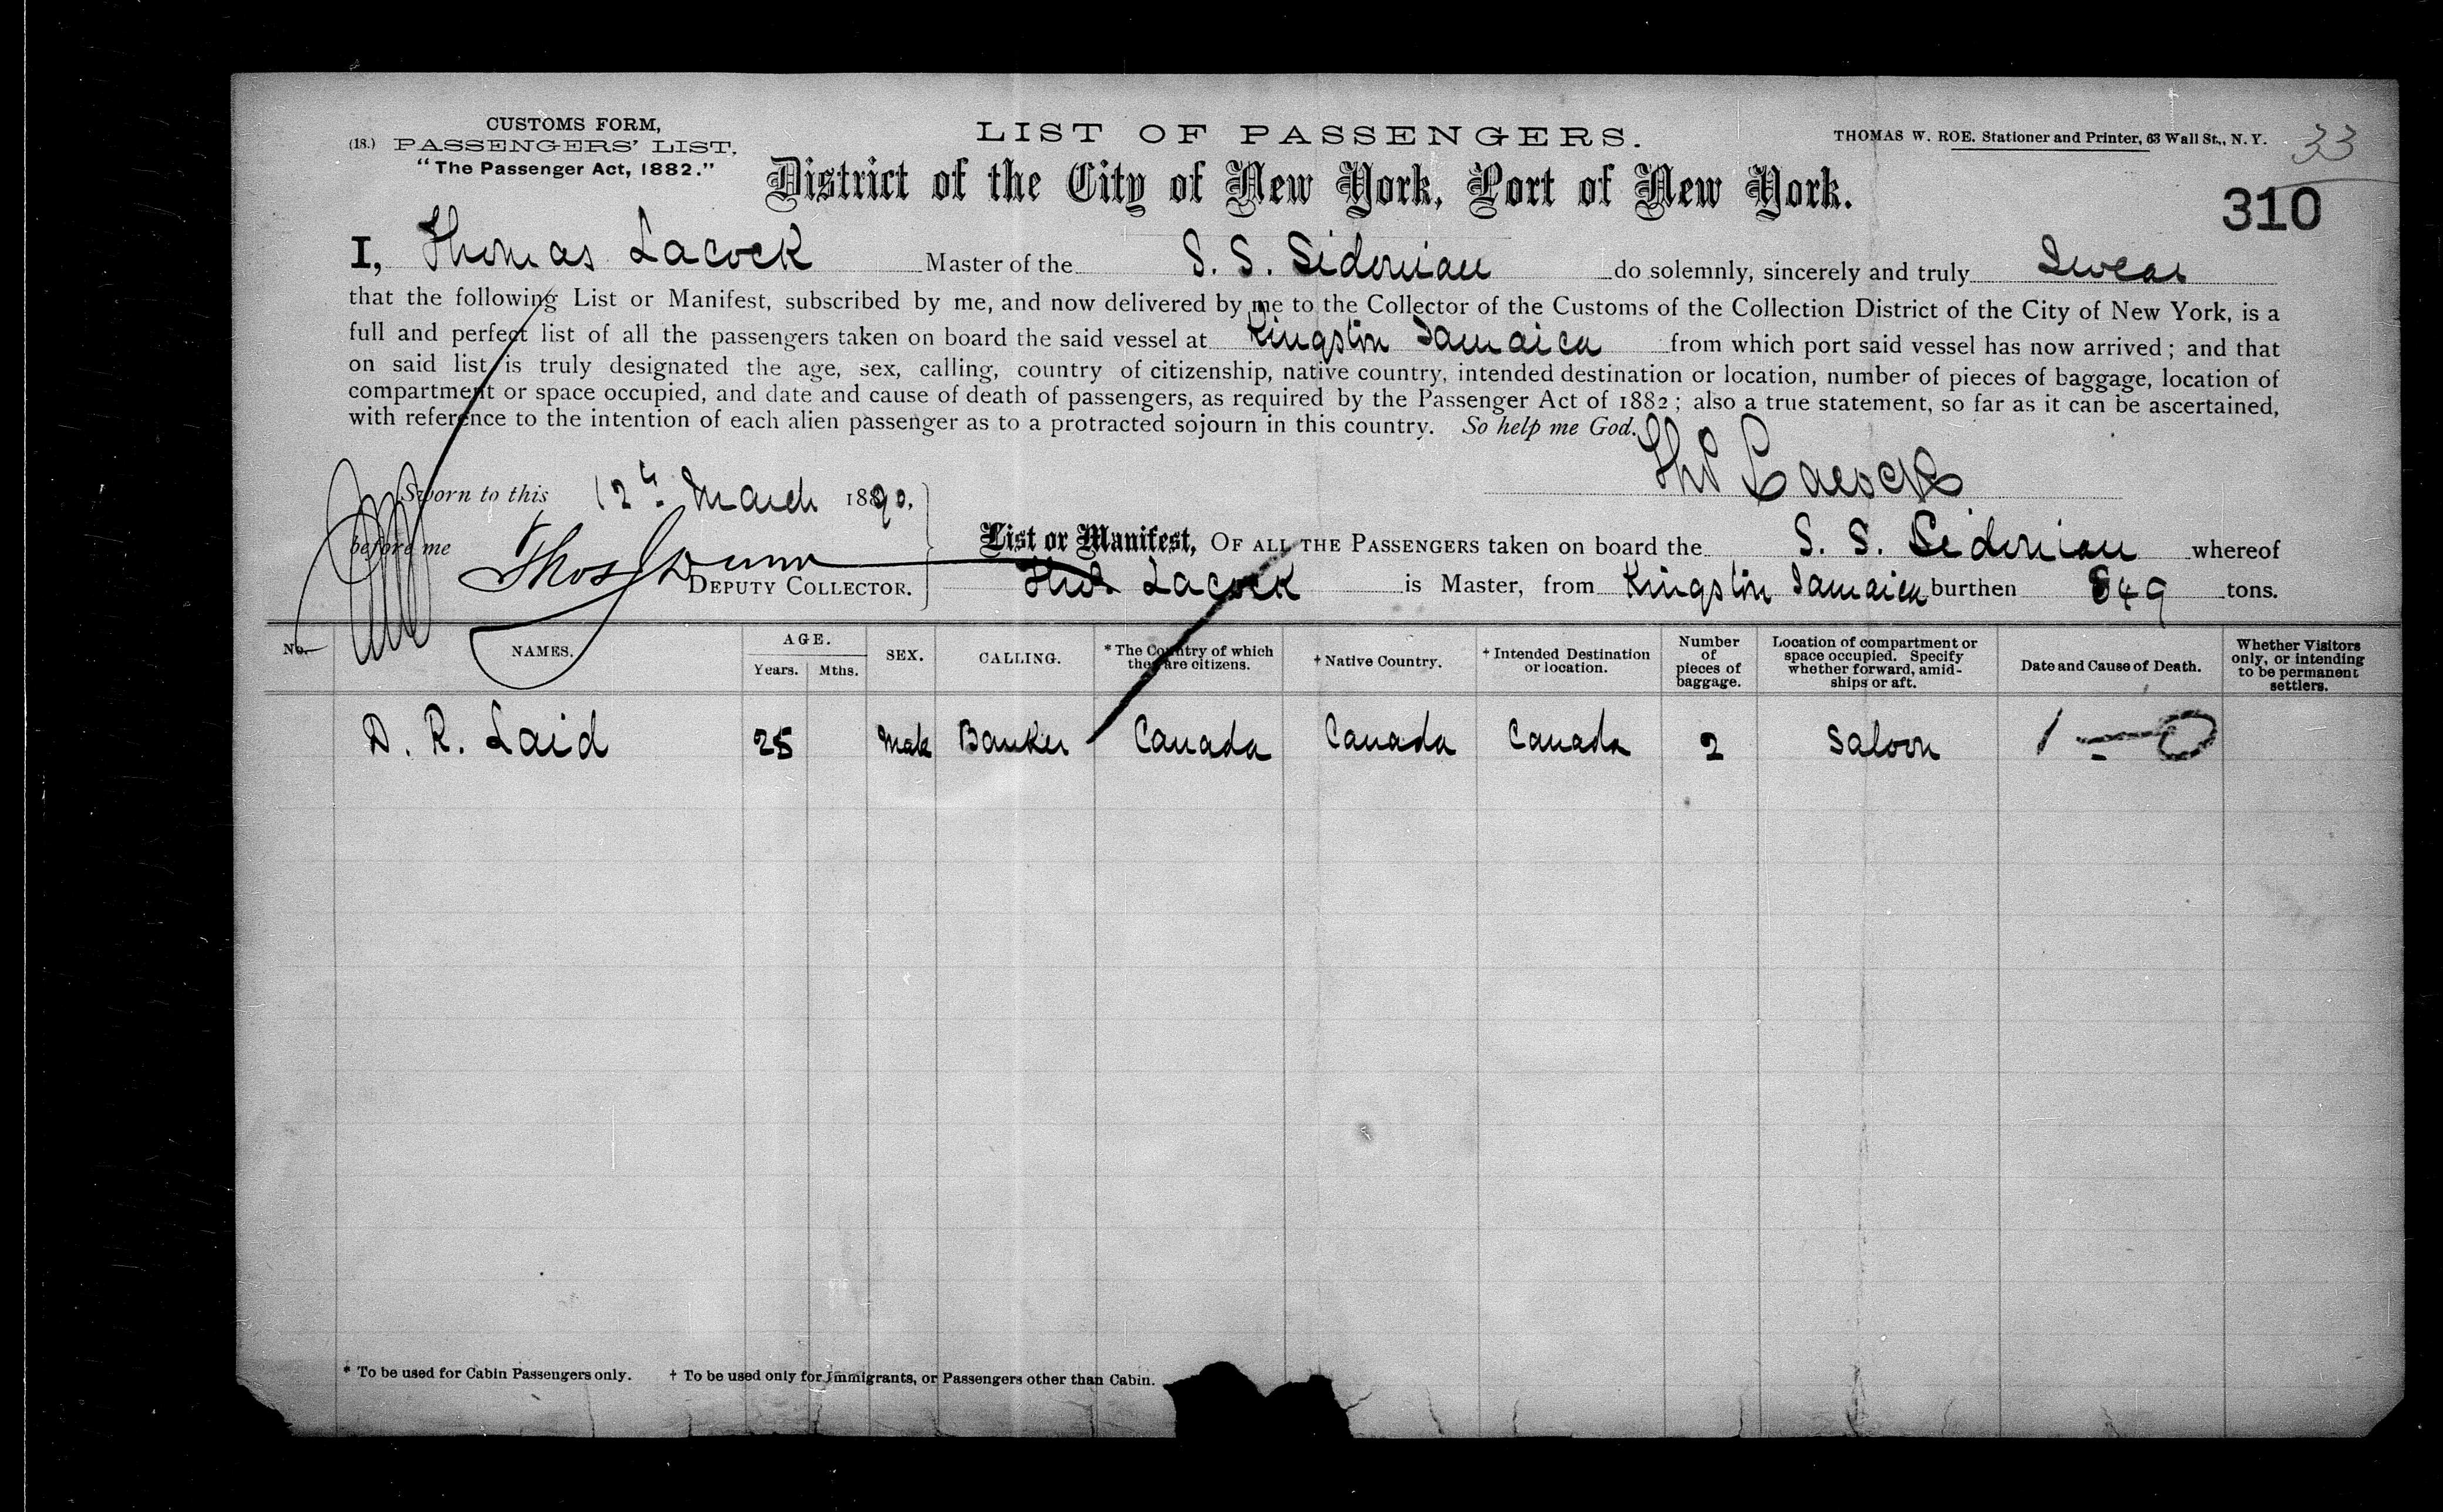 CUSTOMS FORM,
(18.) PASSENGERS' LIST.
"The Passenger Act, 1882."
LIST OF PASSENGERS.
THOMAS W. ROE. Stationer and Printer, 63 Wall St., N. Y.
33
District of the City of New York, Port of New York.
310
I, Thomas Lacock Master of the S. S. Sidonian do solemnly, sincerely and truly Swear
that the following List or Manifest, subscribed by me, and now delivered by me to the Collector of the Customs of the Collection District of the City of New York, is a
full and perfect list of all the passengers taken on board the said vessel at Kingston Jamaica from which port said vessel has now arrived; and that
on said list is truly designated the age, sex, calling, country of citizenship, native country, intended destination or location, number of pieces of baggage, location of
compartment or space occupied, and date and cause of death of passengers, as required by the Passenger Act of 1882; also a true statement, so far as it can be ascertained,
with reference to the intention of each alien passenger as to a protracted sojourn in this country. So help me God.
Thos Lacock
Sworn to this 12th March 1890,
before me Thos Dunn
DEPUTY COLLECTOR.
List or Manifest, OF ALL THE PASSENGERS taken on board the S. S. Sidonian whereof
Thos. Lacock is Master, from Kingston Jamaica burthen 849 tons.
No. NAMES. AGE. Years. Mths. SEX. CALLING. * The Country of which they are citizens. † Native Country. † Intended Destination or location. Number of pieces of baggage. Location of compartment or space occupied. Specify whether forward, amidships or aft. Date and Cause of Death. Whether Visitors only, or intending to be permanent settlers.
D. R. Laid 25 Male Banker Canada Canada Canada 2 Saloon 1 - 0
* To be used for Cabin Passengers only. † To be used only for Immigrants, or Passengers other than Cabin.